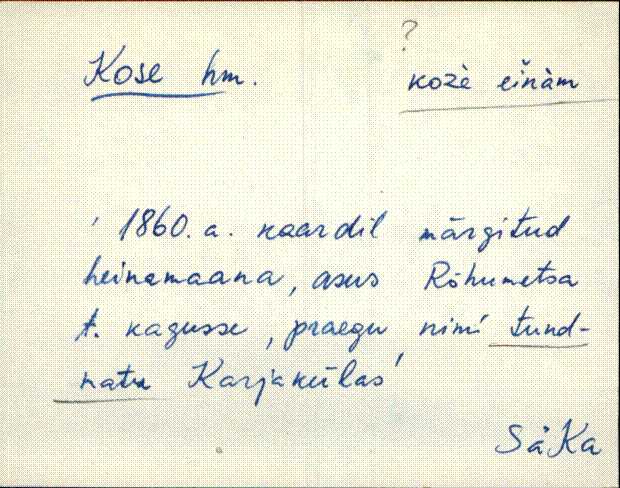 ?
Kose hm. kožè eĭnàm
' 1860. a. kaardil märgitud
heinamaana, asus Rõhumetsa
t. kagusse, praegu nimi tund-
natu Karjakülas'
SäKa